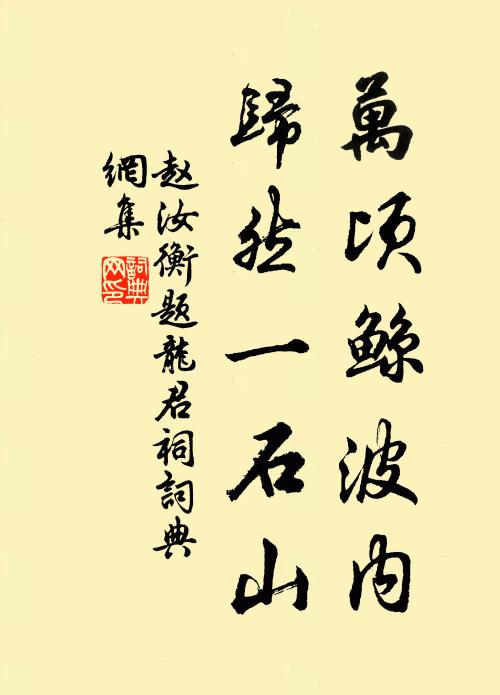 萬頃鲸波内
歸然一石山
赵汝衡题龍君祠詞典
網集
詞典
网印